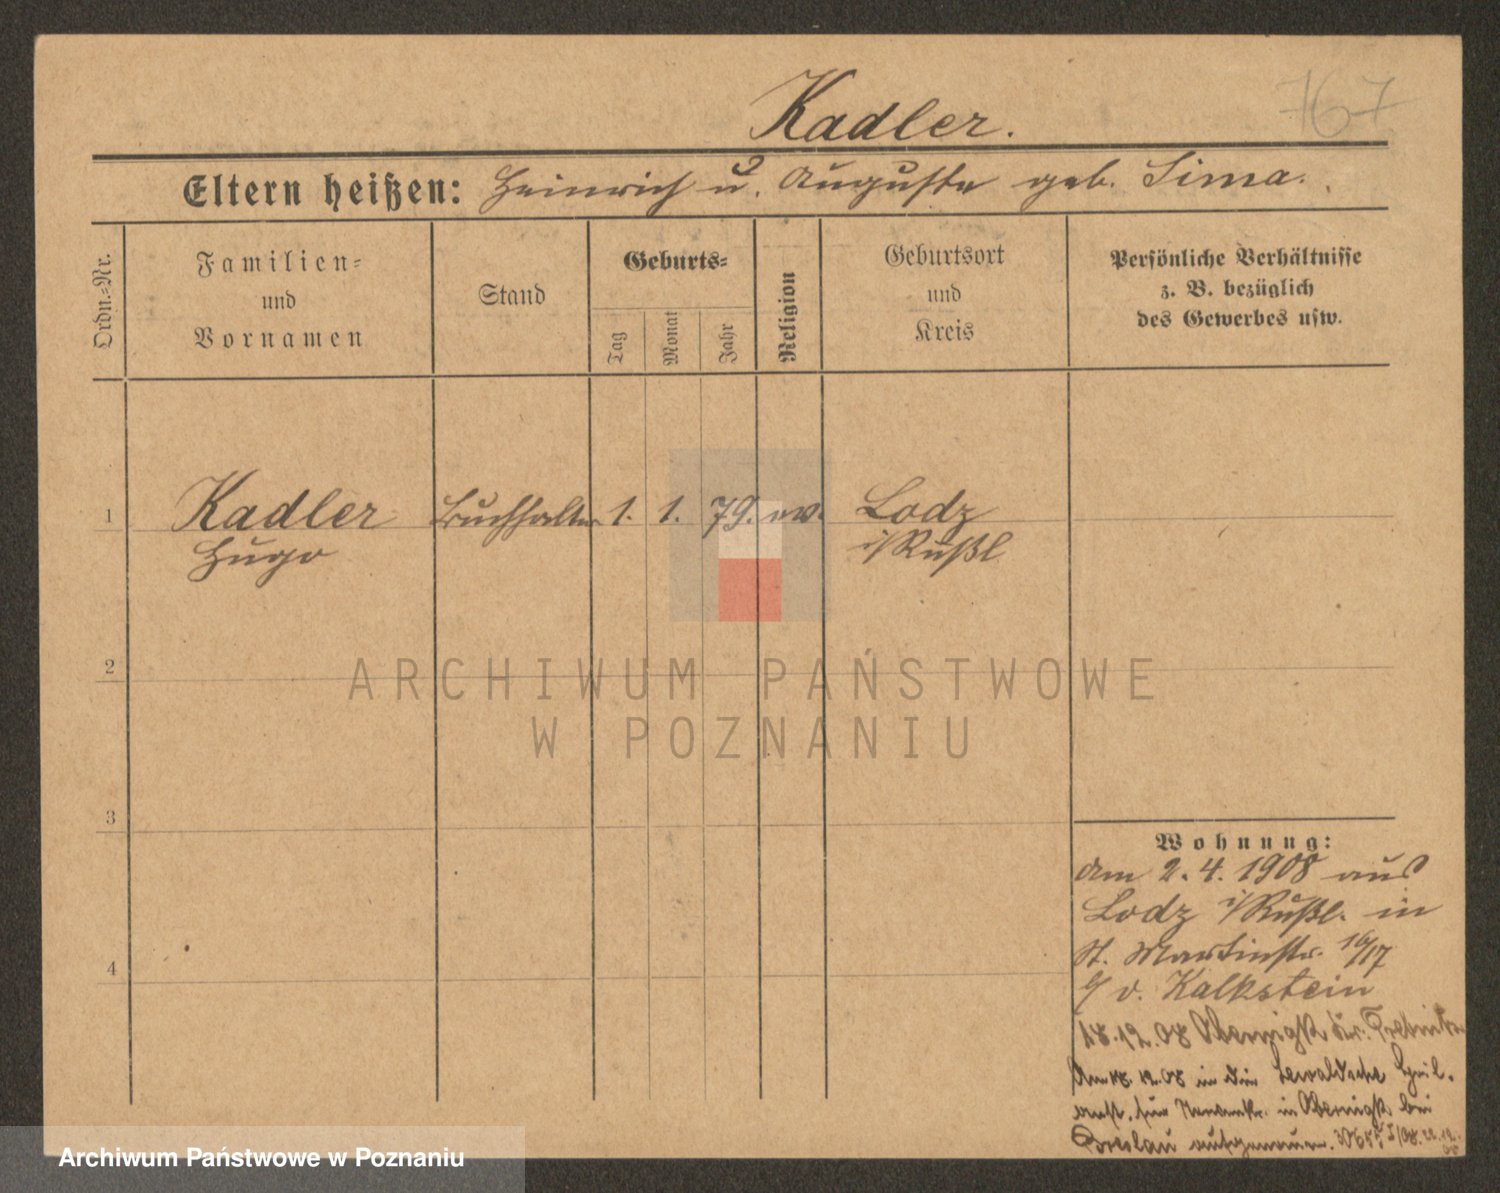 767
Kadler.
Eltern heißen: Heinrich u. Auguste geb. Sima.
Ordn.-Nr.
Familien-
und
Vornamen
Stand
Geburts-
Tag
Monat
Jahr
Religion
Geburtsort
und
Kreis
Persönliche Verhältnisse
z. B. bezüglich
des Gewerbes usw.
1 Kadler Buchhalter 1. 1. 79. ev. Lodz
Hugo i/Rußl
2
ARCHIWUM PAŃSTWOWE
W POZNANIU
3
Wohnung:
am 2.4.1908 aus
Lodz i/Rußl. in
St. Martinstr. 16/17
b/ v. Kalkstein
4
18.12.08 Obernigk Kr. Trebnitz
Am 18.12.08 in die Lewaldsche Heil-
anst. für Nervenkr. in Obernigk bei
Breslau aufgenommen.
Archiwum Państwowe w Poznaniu